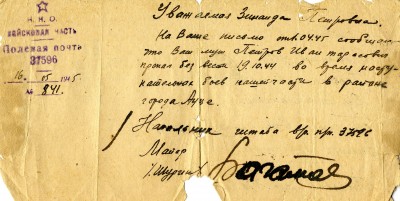 Н. К. О.
ВОЙСКОВАЯ ЧАСТЬ
Полевая почта
37596
16 05 1945
№ 841.
Уважаемая Зинаида Петровна.
На Ваше письмо от 1.04.45 сообщаем
что Ваш муж Петров Иван Тарасович
пропал без вести 19.10.44 во время насту
пательных боев нашей части в районе
города Ауце.
Начальник штаба в/ч пп. 37596
Майор